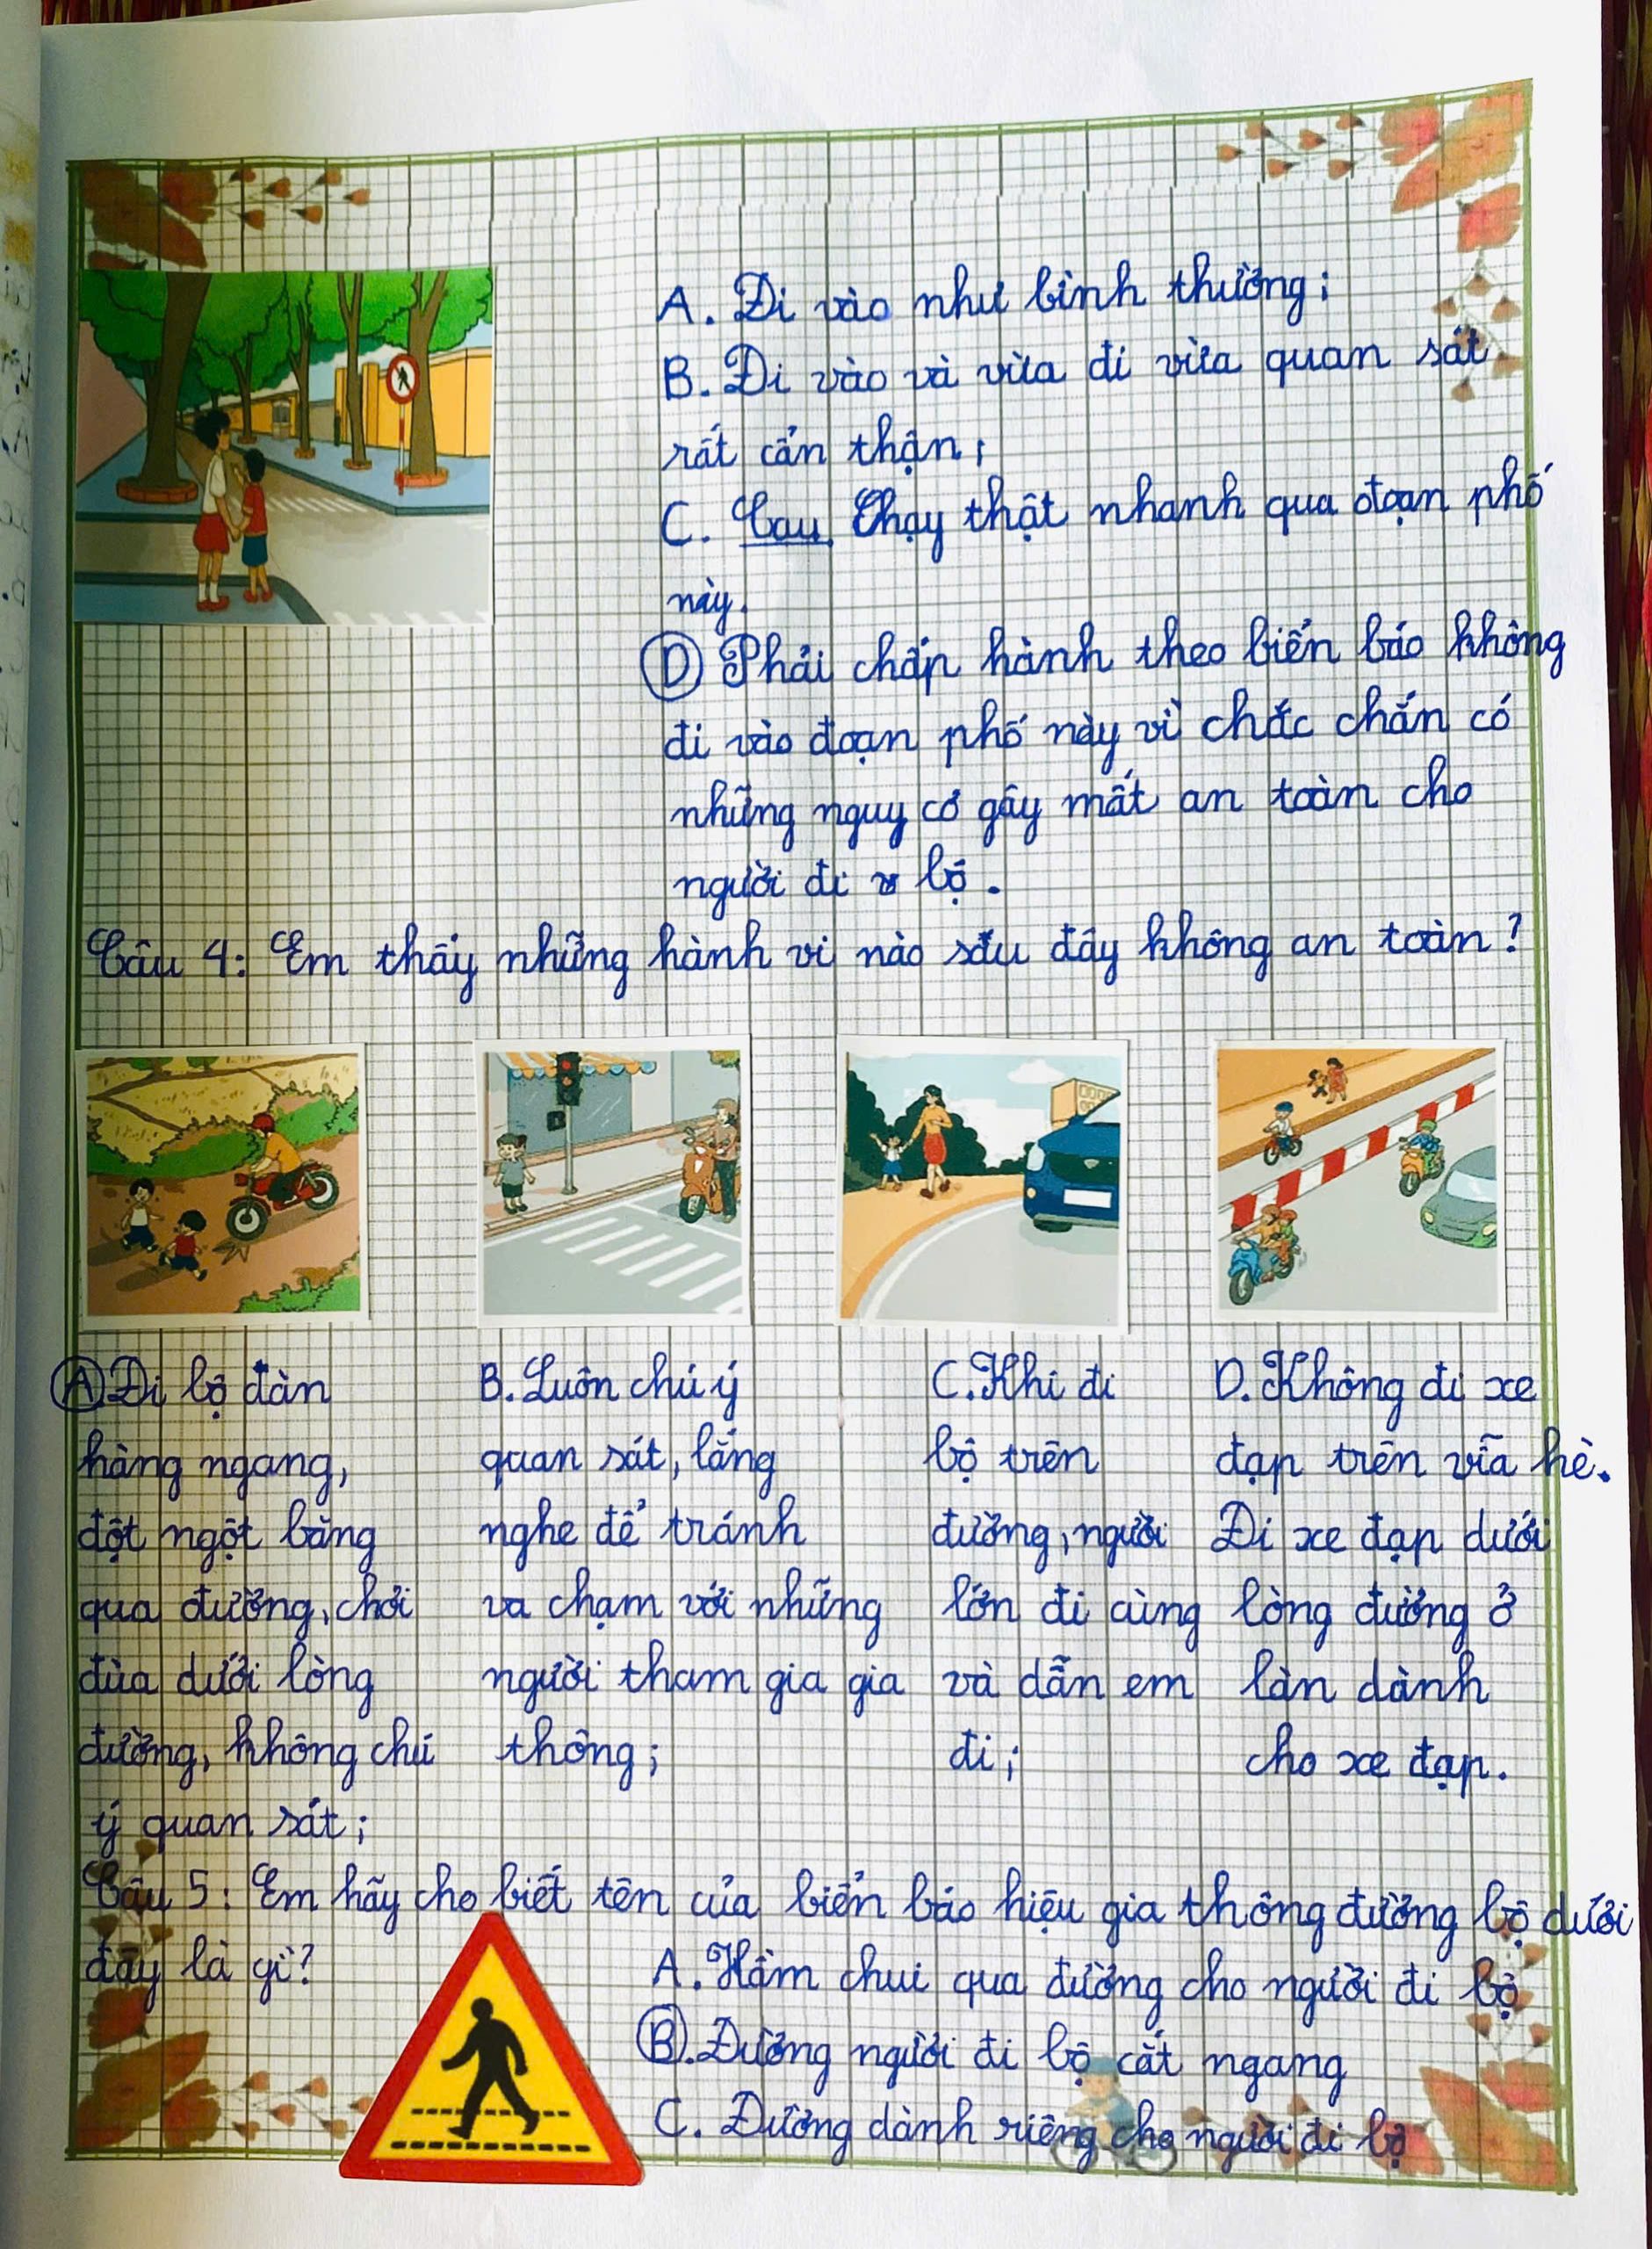 A. Đi vào như bình thường;
B. Đi vào và vừa đi vừa quan sát
rất cẩn thận;
C. Cau Chạy thật nhanh qua đoạn phố
này.
D Phải chấp hành theo biển báo không
đi vào đoạn phố này vì chắc chắn có
những nguy cơ gây mất an toàn cho
người đi bộ.
Câu 4: Em thấy những hành vi nào sau đây không an toàn?
A Đi bộ dàn
hàng ngang,
đột ngột băng
qua đường, chơi
đùa dưới lòng
đường, không chú
ý quan sát;
B. Luôn chú ý
quan sát, lắng
nghe để tránh
va chạm với những
người tham gia gia
thông;
C. Khi đi
bộ trên
đường, người
lớn đi cùng
và dẫn em
đi;
D. Không đi xe
đạp trên vĩa hè.
Đi xe đạp dưới
lòng đường ở
làn dành
cho xe đạp.
Câu 5: Em hãy cho biết tên của biển báo hiệu gia thông đường bộ dưới
đây là gì?
A. Hầm chui qua đường cho người đi bộ
B. Đường người đi bộ cắt ngang
C. Đường dành riêng cho người đi bộ